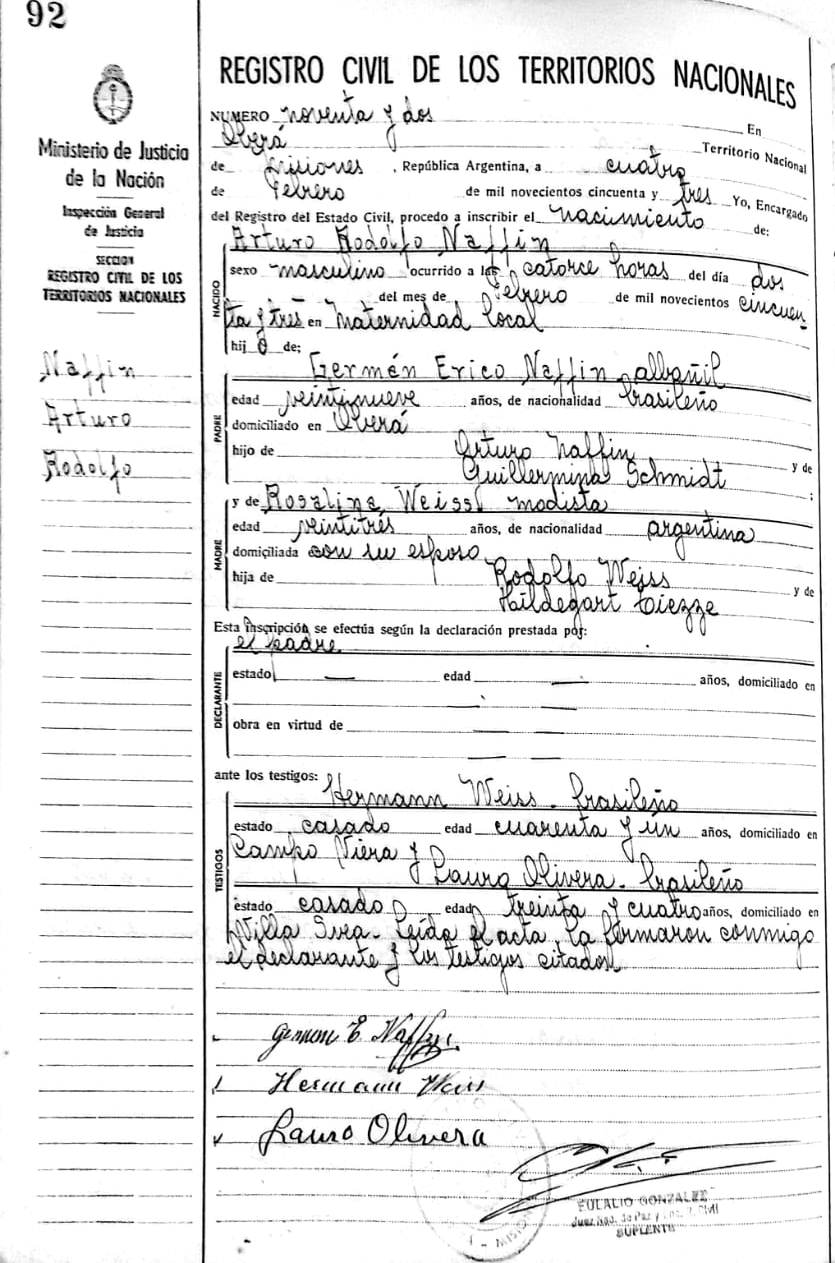 92
Ministerio de Justicia
de la Nación
Inspección General
de Justicia
SECCION
REGISTRO CIVIL DE LOS
TERRITORIOS NACIONALES
Naffin
Arturo
Rodolfo
REGISTRO CIVIL DE LOS TERRITORIOS NACIONALES
NUMERO noventa y dos En
Oberá Territorio Nacional
de Misiones, República Argentina, a cuatro
de febrero de mil novecientos cincuenta y tres Yo, Encargado
del Registro del Estado Civil, procedo a inscribir el nacimiento de:
NACIDO
Arturo Rodolfo Naffin
sexo masculino ocurrido a las catorce horas del día dos
del mes de febrero de mil novecientos cincuen
ta y tres en Maternidad local
hijo de;
PADRE
Germán Erico Naffin albañil
edad veintinueve años, de nacionalidad brasileño
domiciliado en Oberá
hijo de Arturo Naffin y de
Guillermina Schmidt ;
MADRE
y de Rosalina Weiss modista
edad veintitrés años, de nacionalidad argentina
domiciliada con su esposo
hija de Rodolfo Weiss y de
Hildegart Tiezze
Esta inscripción se efectúa según la declaración prestada por:
DECLARANTE
el padre
estado — edad — años, domiciliado en
obra en virtud de
ante los testigos:
TESTIGOS
Hermann Weiss - brasileño
estado casado edad cuarenta y un años, domiciliado en
Campo Viera y
Lauro Olivera - brasileño
estado casado edad treinta y cuatro años, domiciliado en
Villa Svea. Leída el acta, la firmaron conmigo
el declarante y los testigos citados
German E. Naffin
Hermann Weiss
Lauro Olivera
EULALIO GONZALEZ
Juez Nac. de Paz
SUPLENTE
MISIONES